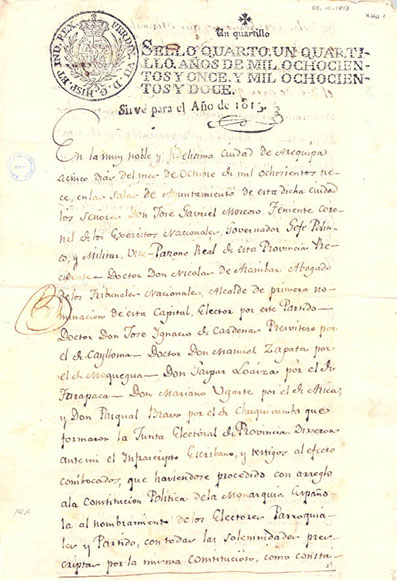 05.10.1813
Un quartillo
FERDIN. VII. D. G. HISP. ET IND. REX
SELLO QUARTO, UN QUARTI-
LLO, AÑOS DE MIL OCHOCIEN-
TOS Y ONCE, Y MIL OCHOCIEN-
TOS Y DOCE.
Sirve para el Año de 1813.
En la muy noble y fidelisima Ciudad de Arequipa
a cinco dias del mes de Octubre de mil ochocientos tre-
ce, en las Salas de Ayuntamiento de esta dicha ciudad
los Señores Don Jose Gabriel Moscoso Teniente Coro-
nel de los Exercitos Nacionales, Governador Gefe Politi-
co, y Militar, Vice-Patrono Real de esta Provincia Pre-
sidente Doctor Don Nicolas de Aranibar Abogado
de los Tribunales Nacionales, Alcalde de primera no-
minacion de esta Capital, Elector por este Partido
Doctor Don Jose Ignacio de Cardenas Presvitero por
el de Caylloma Doctor Don Manuel Zapata por
el de Moquegua Don Gaspar Loaiza por el de
Tarapaca Don Mariano Ugarte por el de Arica,
y Don Pasqual Bravo por el de Chuquivamba que
formaron la Junta Electoral de Provincia Dixeron
ante mi el Infrascripto Escribano, y testigos al efecto
combocados, que haviendose procedido con arreglo
a la Constitucion Politica de la Monarquia Españo-
la al nombramiento de los Electores Parroquia-
les y Partido, con todas las solemnidades pres-
criptas por la misma Constitucion, como consta